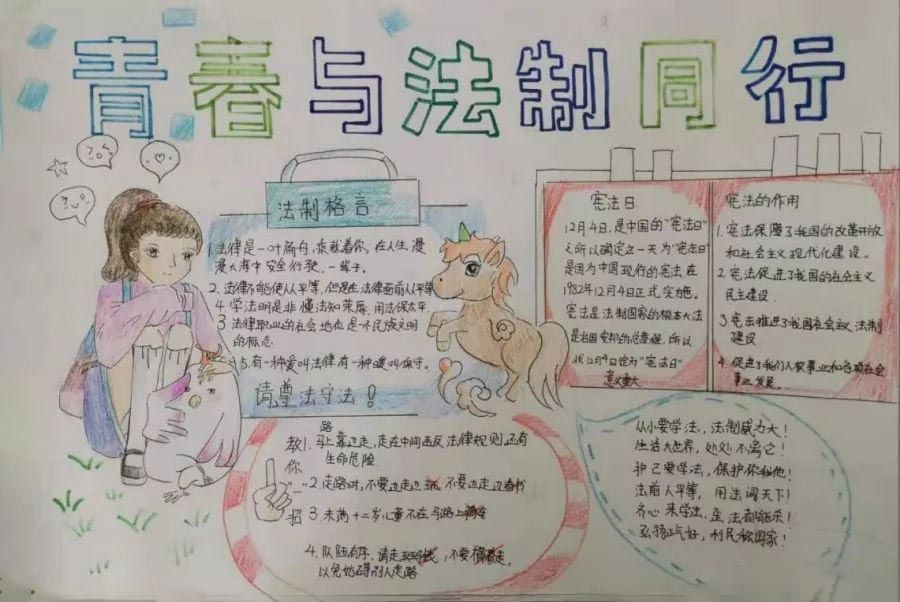 青春与法制同行
法制格言
1.法律是一叶扁舟,乘载着你,在人生漫
漫大海中安全行驶.一辈子.
2.法律不能使人平等,但是在法律面前人平等
4.学法明是非 懂法知荣辱 用法保太平
3 法律职业的社会地位是一个民族文明
的标志.
5.有一种爱叫法律 有一种暖叫保守.
请遵法守法!
宪法日
12月4日,是中国的"宪法日"
之所以确定这一天为"宪法日"
是因为中国现行的宪法在
1982年12月4日正式实施。
宪法是法制国家的根本大法
是治国安邦的总章程,所以
12月4日定为"宪法日"
意义重大
宪法的作用
1.宪法保障了我国的改革开放
和社会主义现代化建设.
2.宪法促进了我国的社会主义
民主建设
3.宪法推进了我国社会主义法制
建设
4.促进了我们人权事业和各项社会
事业发展.
路
教你一招
1.马上靠边走,走在中间违反法律规则,还有
生命危险.
2.走路时,不要边走边玩 不要边走边看书
3.未满十二岁儿童不在马路上骑车
4.队伍有序,请走,不要横着走,
以免妨碍别人走路
从小要学法,法制威力大!
生活大世界,处处不离它!
护己要学法,保护你和他!
法前人平等,用法闯天下!
齐心来学法,歪法都能杀!
弘扬正气好,利民称国家!